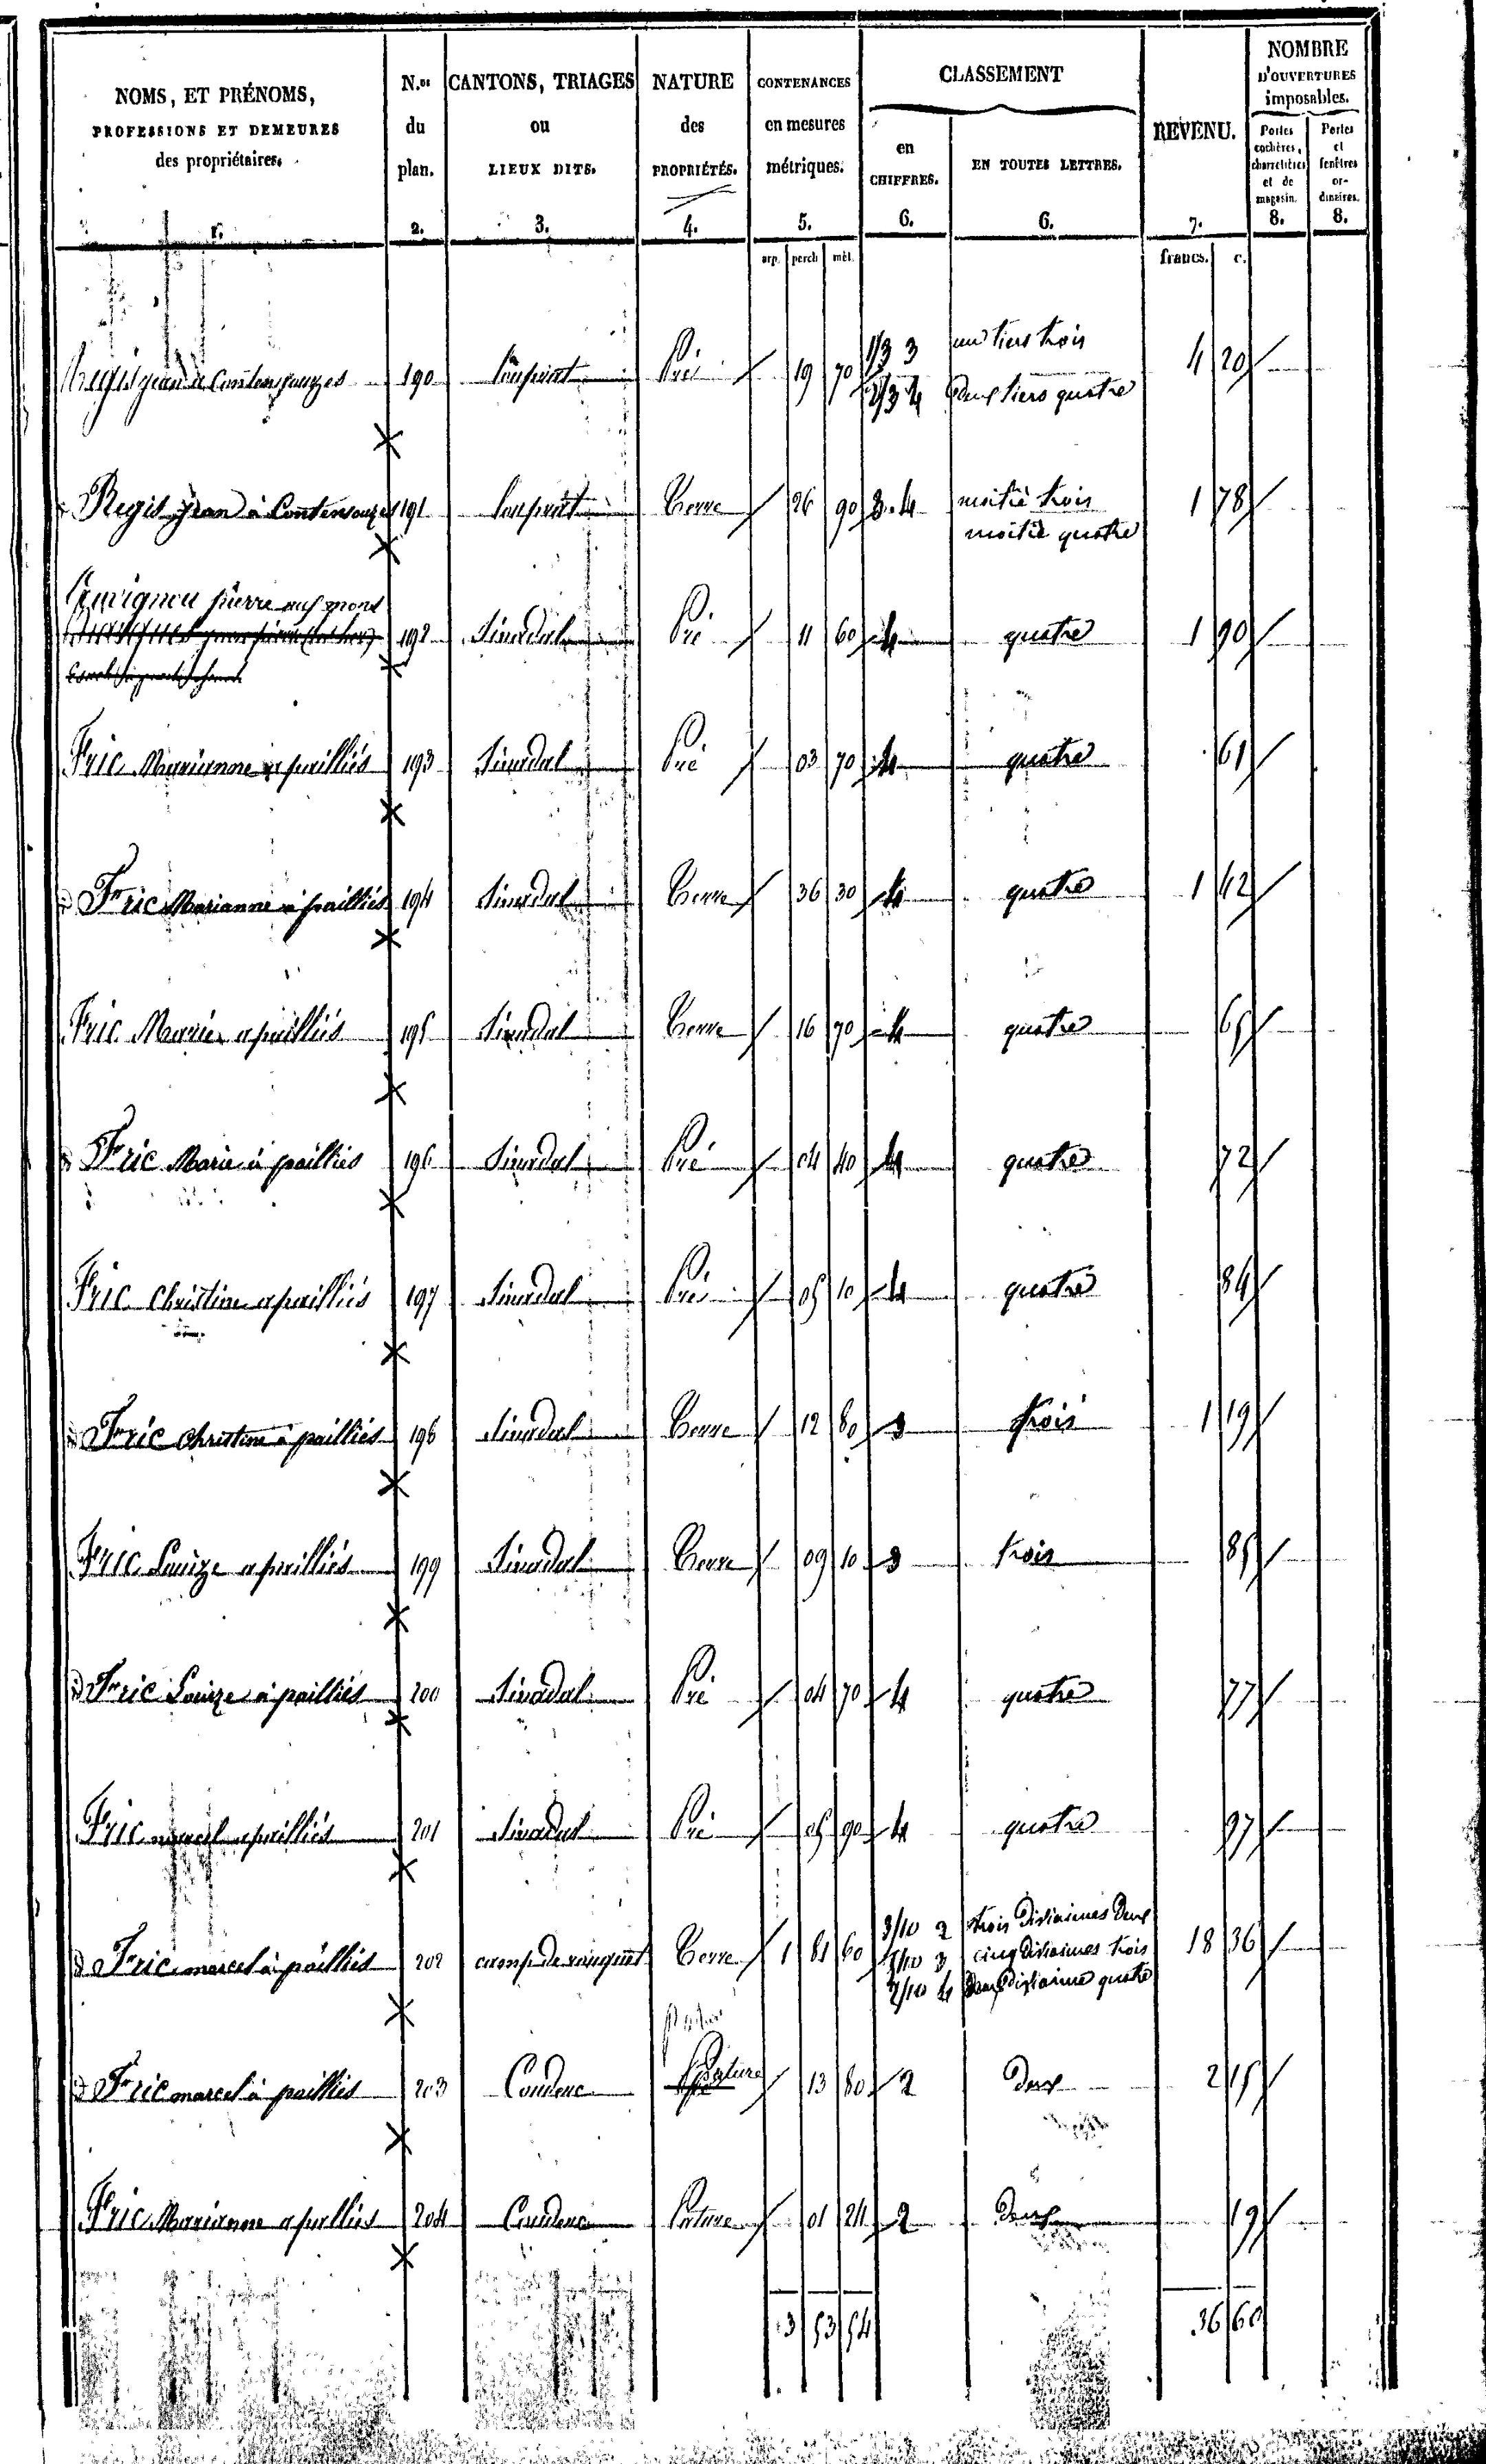 NOMS, ET PRÉNOMS, PROFESSIONS ET DEMEURES des propriétaires. 1.
N.os du plan. 2.
CANTONS, TRIAGES ou LIEUX DITS. 3.
NATURE des PROPRIÉTÉS. 4.
CONTENANCES en mesures métriques. 5.
CLASSEMENT
en CHIFFRES. 6.
EN TOUTES LETTRES. 6.
REVENU. 7.
NOMBRE D'OUVERTURES imposables.
Portes cochères, charretières et de magasin. 8.
Portes et fenêtres ordinaires. 8.
arp. perch mèt. francs. c.
190 Pré 19 70 1/3 3 un tiers trois 4 20
2/3 4 Deux tiers quatre
Regis jean à 191 Terre 26 90 3. 4 moitié trois 1 78
moitié quatre
pierre aux mons
192 Sinadal Pré 11 60 4 quatre 1 90
Fric Marianne a pailliés 193 Sinadal Pré 03 70 4 quatre 61
d Fric Marianne à pailliés 194 Sinadal Terre 36 30 4 quatre 1 42
Fric Marie a pailliés 195 Sinadal Terre 16 70 4 quatre 65
d Fric Marie à pailliés 196 Sinadal Pré 04 40 4 quatre 72
Fric Christine a pailliés 197 Sinadal Pré 05 10 4 quatre 84
d Fric Christine à pailliés 198 Sinadal Terre 12 80 3 trois 1 19
Fric Louize a pailliés 199 Sinadal Terre 09 10 3 trois 85
d Fric Louize à pailliés 200 Sinadal Pré 04 70 4 quatre 77
Fric marcel a pailliés 201 Sinadal Pré 05 90 4 quatre 97
3/10 2 trois dixiaimes Deux
d Fric marcel à pailliés 202 Terre 1 81 60 5/10 3 cinq dixiaimes trois 18 36
2/10 4 Deux dixiaime quatre
d Fric marcel à pailliés 203 Couderc Pature 13 80 2 Deux 2 15
Fric Marianne a pailliés 204 Couderc Pature 01 24 2 Deux 19
3 53 54 36 60